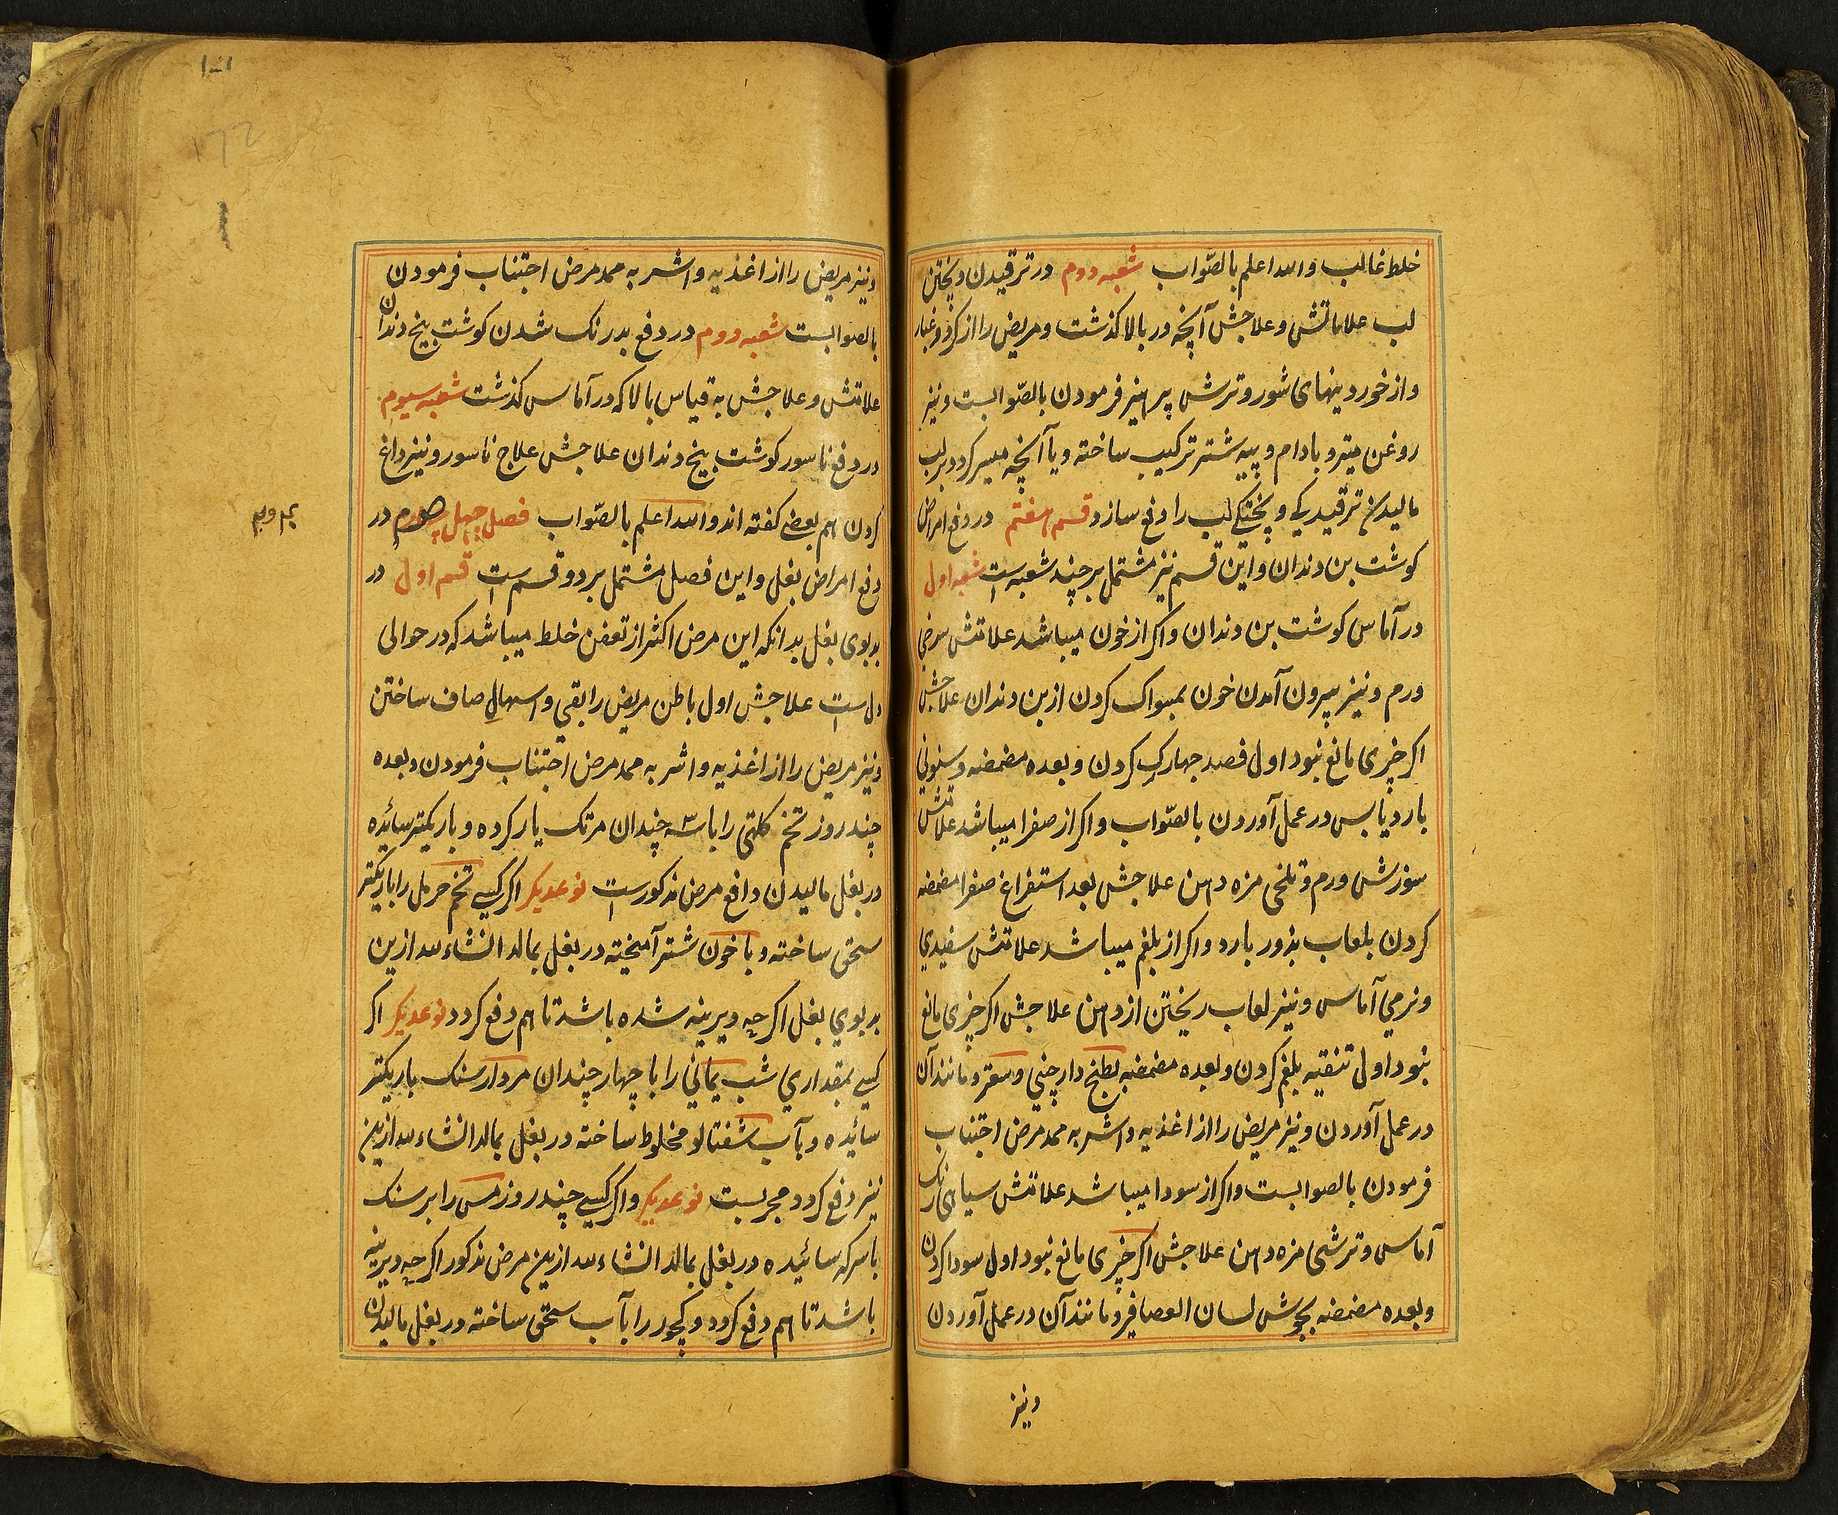 خلط غالب والله اعلم بالصّواب شعبه دوم در ترقیدن و پختن
لب علاماتش و علاجش آنچه در بالا کذشت و مریض را از کرد و غبار
و از خوردینهای شور و ترش پرهیز فرمودن بالصّوابست و نیز
روغن میترو بادام و پیه شتر ترکیب ساخته و یا آنچه میسر کردد بر لب
مالیدن ترقیدکی و پختکی لب را دفع سازد قسم هفتم در دفع امراض
کوشت بن دندان و این قسم نیز مشتمل بر چند شعبه است شعبه اول
در آماس کوشت بن دندان و اکر از خون میباشد علاتش سرخی
ورم و نیز بیرون آمدن خون بمسواک کردن از بن دندان علاجش
اکر چیزی مانع نبود اول فصد چهار رک کردن و بعده مضمضه و سنونی
بارد یابس در عمل آوردن بالصّواب و اکر از صفرا میباشد علاتش
سوزش ورم و تلخی مزه دهن علاجش بعد استفراغ صفرا مضمضه
کردن بلعاب بذور بارد و اکر از بلغم میباشد علاتش سفیدی
و نرمی آماس و نیز لعاب ریختن از دهن علاجش اکر چیزی مانع
نبود اول تنقیه بلغم کردن و بعده مضمضه بطبخ دارچینی و سعتر و مانند آن
در عمل آوردن و نیز مریض را از اغذیه و اشربه ممد مرض اجتناب
فرمودن بالصوابست و اکر از سودا میباشد علاتش سیاهی رنک
آماس و ترشی مزه دهن علاجش اکر چیزی مانع نبود اول سودا کردن
و بعده مضمضه بجوش لسان العصافیر و مانند آن در عمل آوردن
و نیز
و نیز مریض را از اغذیه و اشربه ممد مرض اجتناب فرمودن
بالصوابست شعبه دوم در دفع بدرنک شدن کوشت بیخ دندان
علاتش و علاجش به قیاس بالا که در آماس کذشت شعبه سیوم
در دفع ناسور کوشت بیخ دندان علاجش علاج ناسور و نیز داغ
کردن هم بعضی کفته اند والله اعلم بالصّواب فصل چهل در
دفع امراض بغل و این فصل مشتمل بر دو قسم است قسم اول در
بدبوی بغل بدانکه این مرض اکثر از تعفن خلط میباشد که در حوالی
دل است علاجش اول باطن مریض را بقی و اسهال صاف ساختن
و نیز مریض را از اغذیه و اشربه ممد مرض اجتناب فرمودن و بعده
چند روز تخم کلتی را با سه چندان مرتک یار کرده و باریکتر سائیده
در بغل مالیدن دافع مرض مذکور است نوعدیکر اکر کسی تخم حرمل را باریکتر
سحق ساخته و با خون شتر آمیخته در بغل بمالد انشاءالله ازین
بدبوی بغل اکرچه دیرینه شده باشد تا هم دفع کردد نوعدیکر اکر
کسی بمقداری شب یمانی را با چهار چندان مردار سنک باریکتر
سائیده و بآب شفتالو مخلوط ساخته در بغل بمالد انشاءالله ازین
نیز دفع کردد مجربست نوعدیکر و اکر کسی چند روز مس را بر سنک
با سرکه سائیده در بغل بمالد انشاءالله ازین مرض مذکور اکرچه دیرینه
باشد تا هم دفع کردد و کچور را بآب سحق ساخته در بغل مالیدن